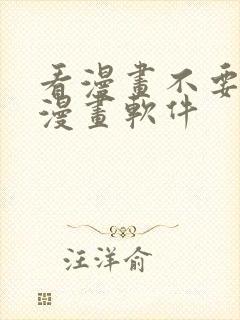 看漫畫不要
漫畫軟件
汪洋俞